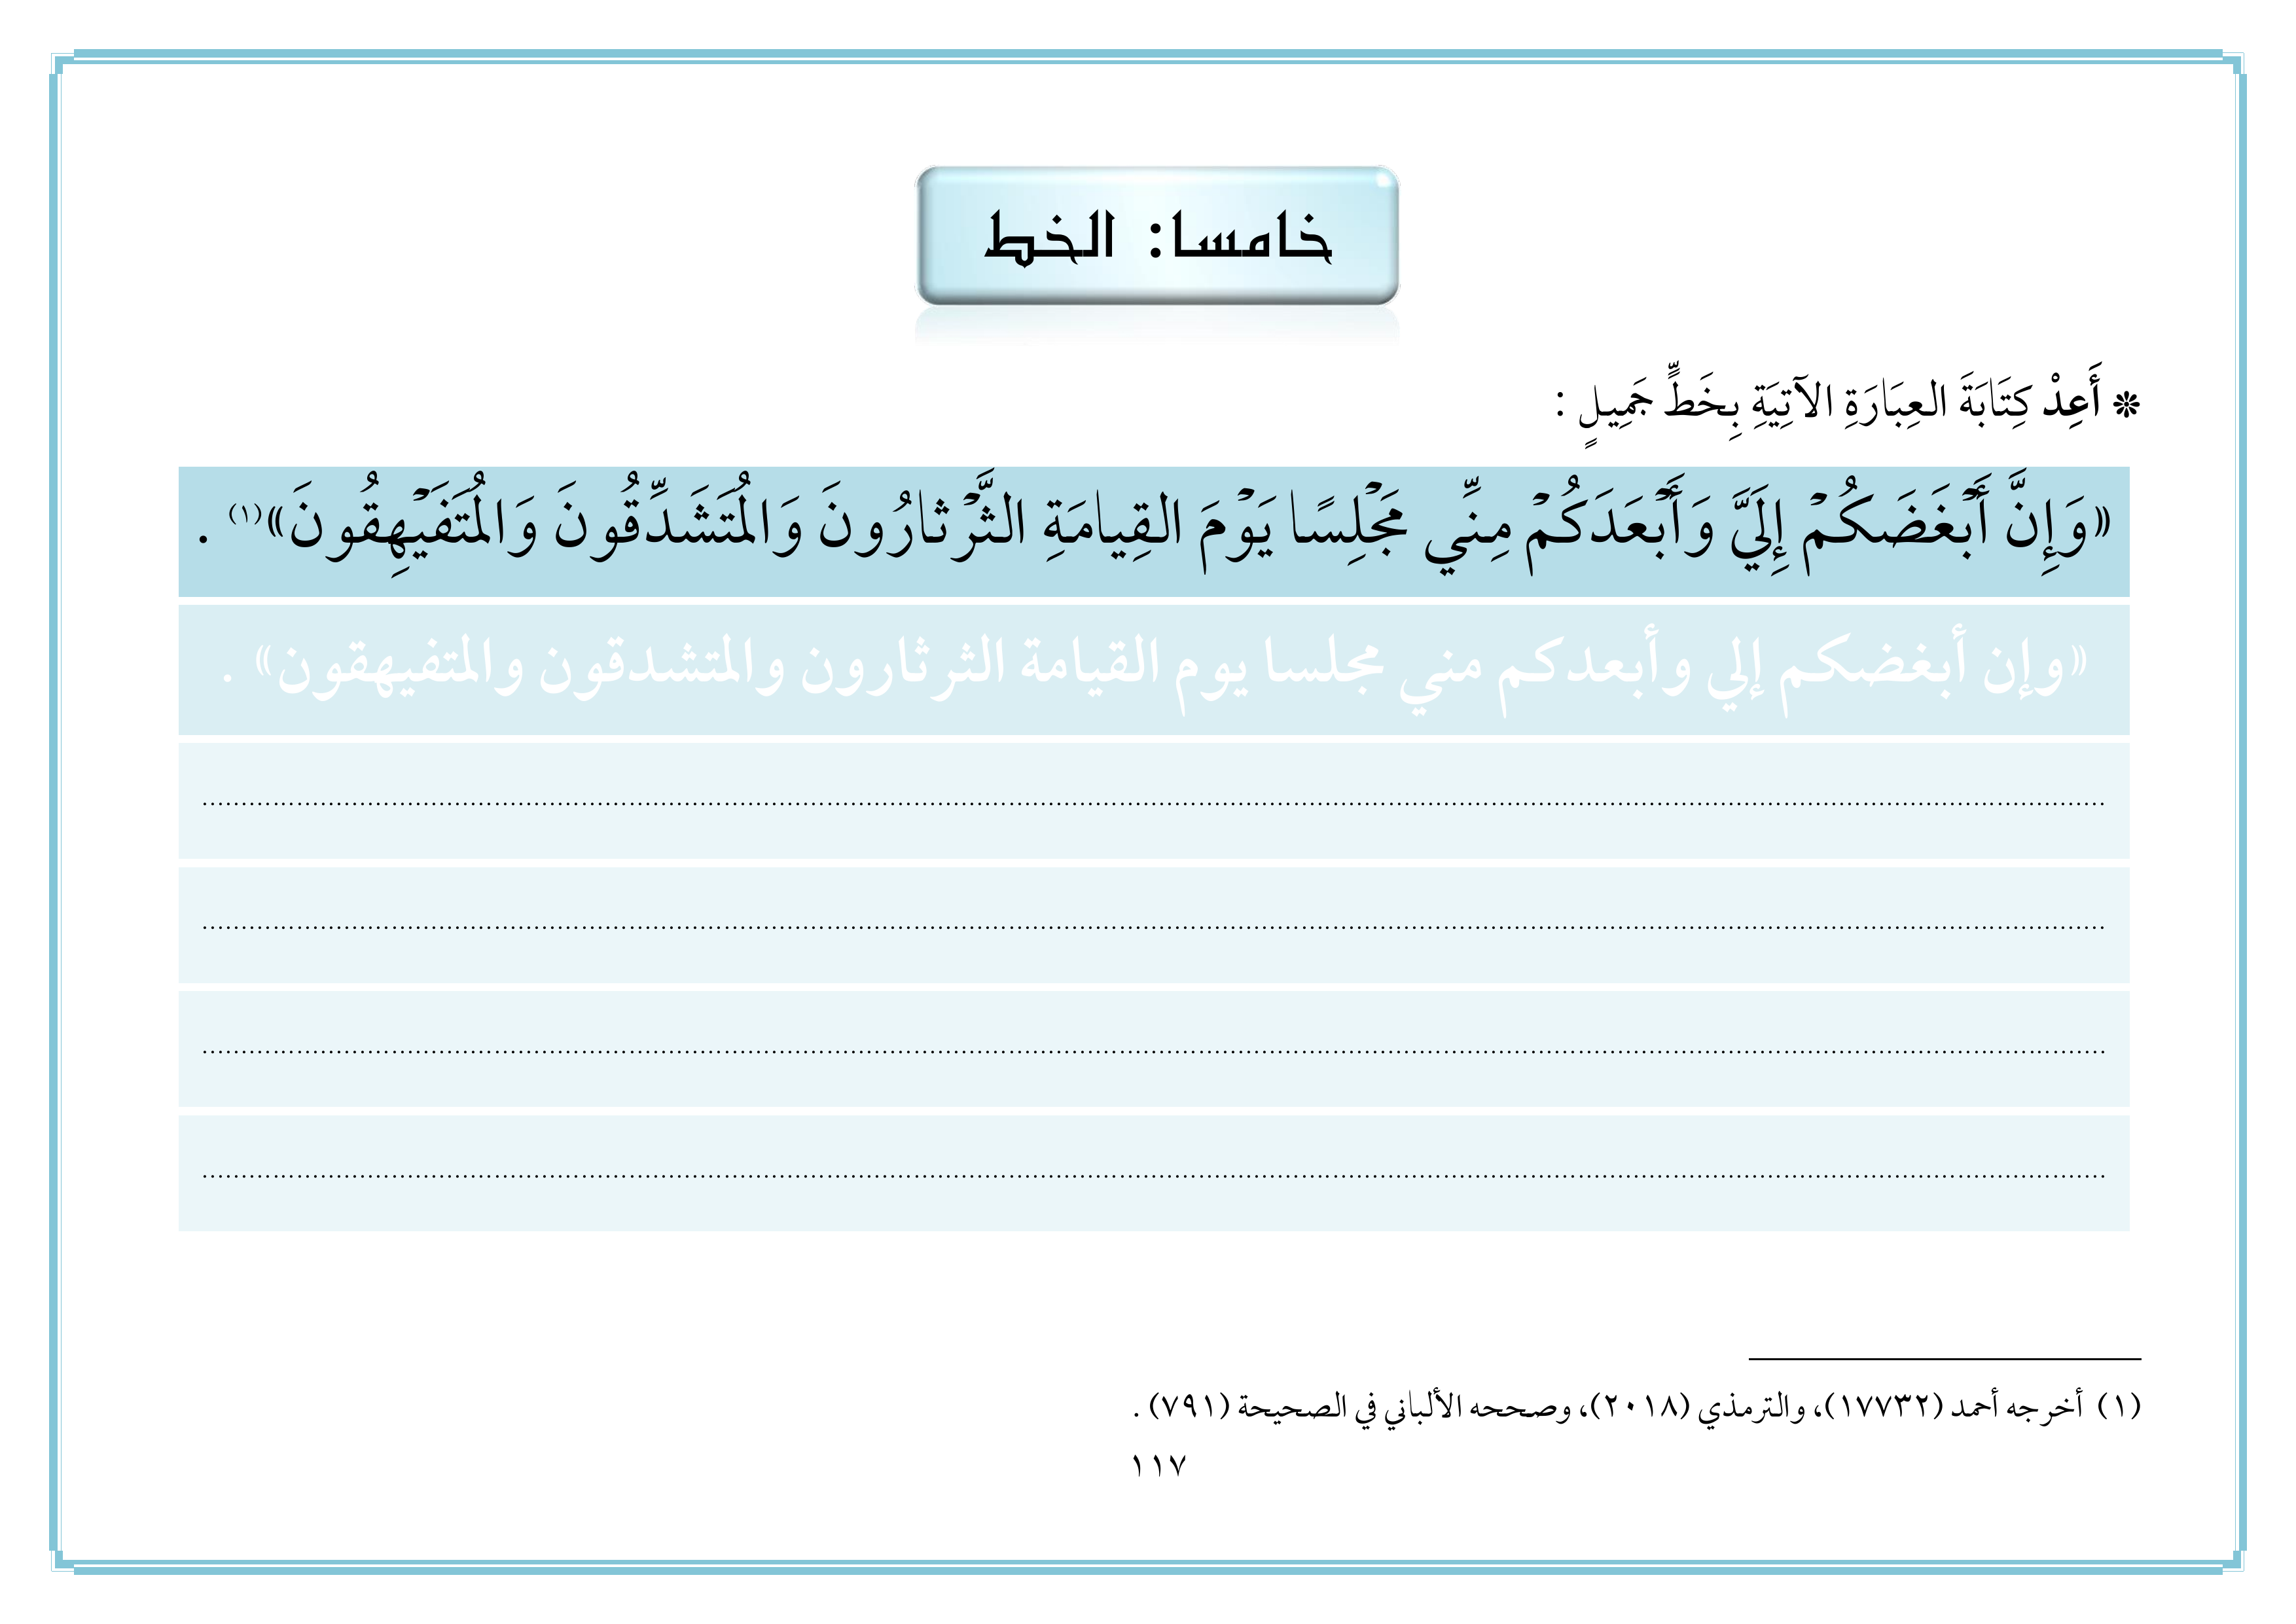 خامسا: الخط
❊ أَعِدْ كِتَابَةَ العِبَارَةِ الآتِيَةِ بِخَطٍّ جَمِيلٍ :
«وَإِنَّ أَبْغَضَكُمْ إِلَيَّ وَأَبْعَدَكُمْ مِنِّي مَجْلِسًا يَوْمَ القِيامَةِ الثَّرْثارُونَ وَالمُتَشَدِّقُونَ وَالمُتَفَيْهِقُونَ»(١) .
«وإن أبغضكم إلي وأبعدكم مني مجلسا يوم القيامة الثرثارون والمتشدقون والمتفيهقون» .
(١) أخرجه أحمد (١٧٧٣٢)، والترمذي (٢٠١٨)، وصححه الألباني في الصحيحة (٧٩١) .
١١٧